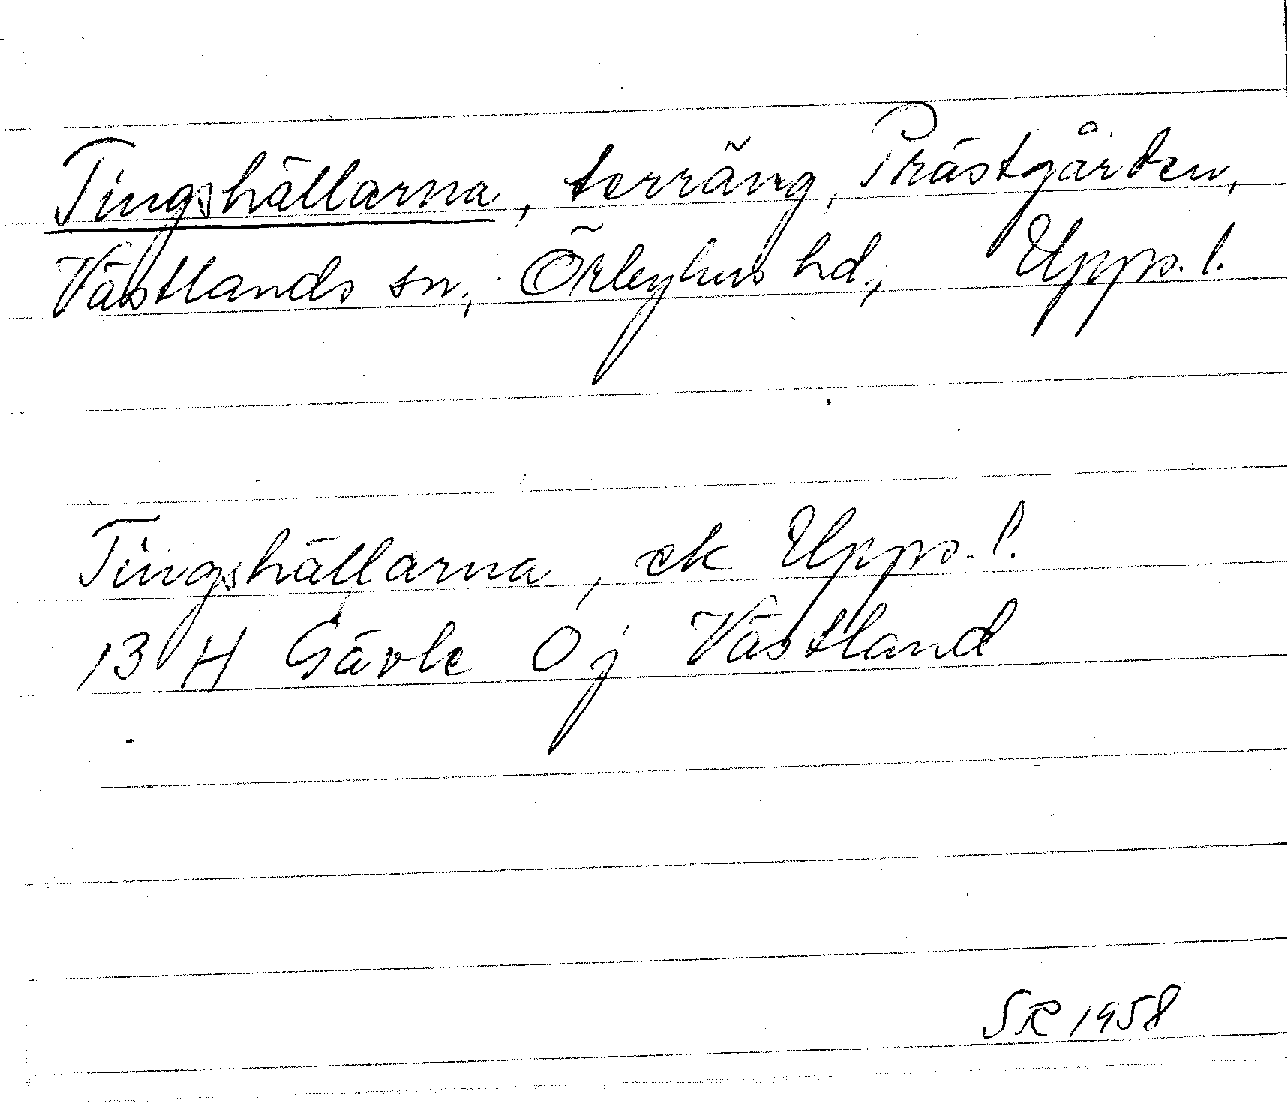 Tingshällarna, terräng, Prästgården,
Västlands sn, Örbyhus hd, Upps. l.
Tingshällarna, ek Upps. l.
13 H Gävle 0 j Västland
SR 1958